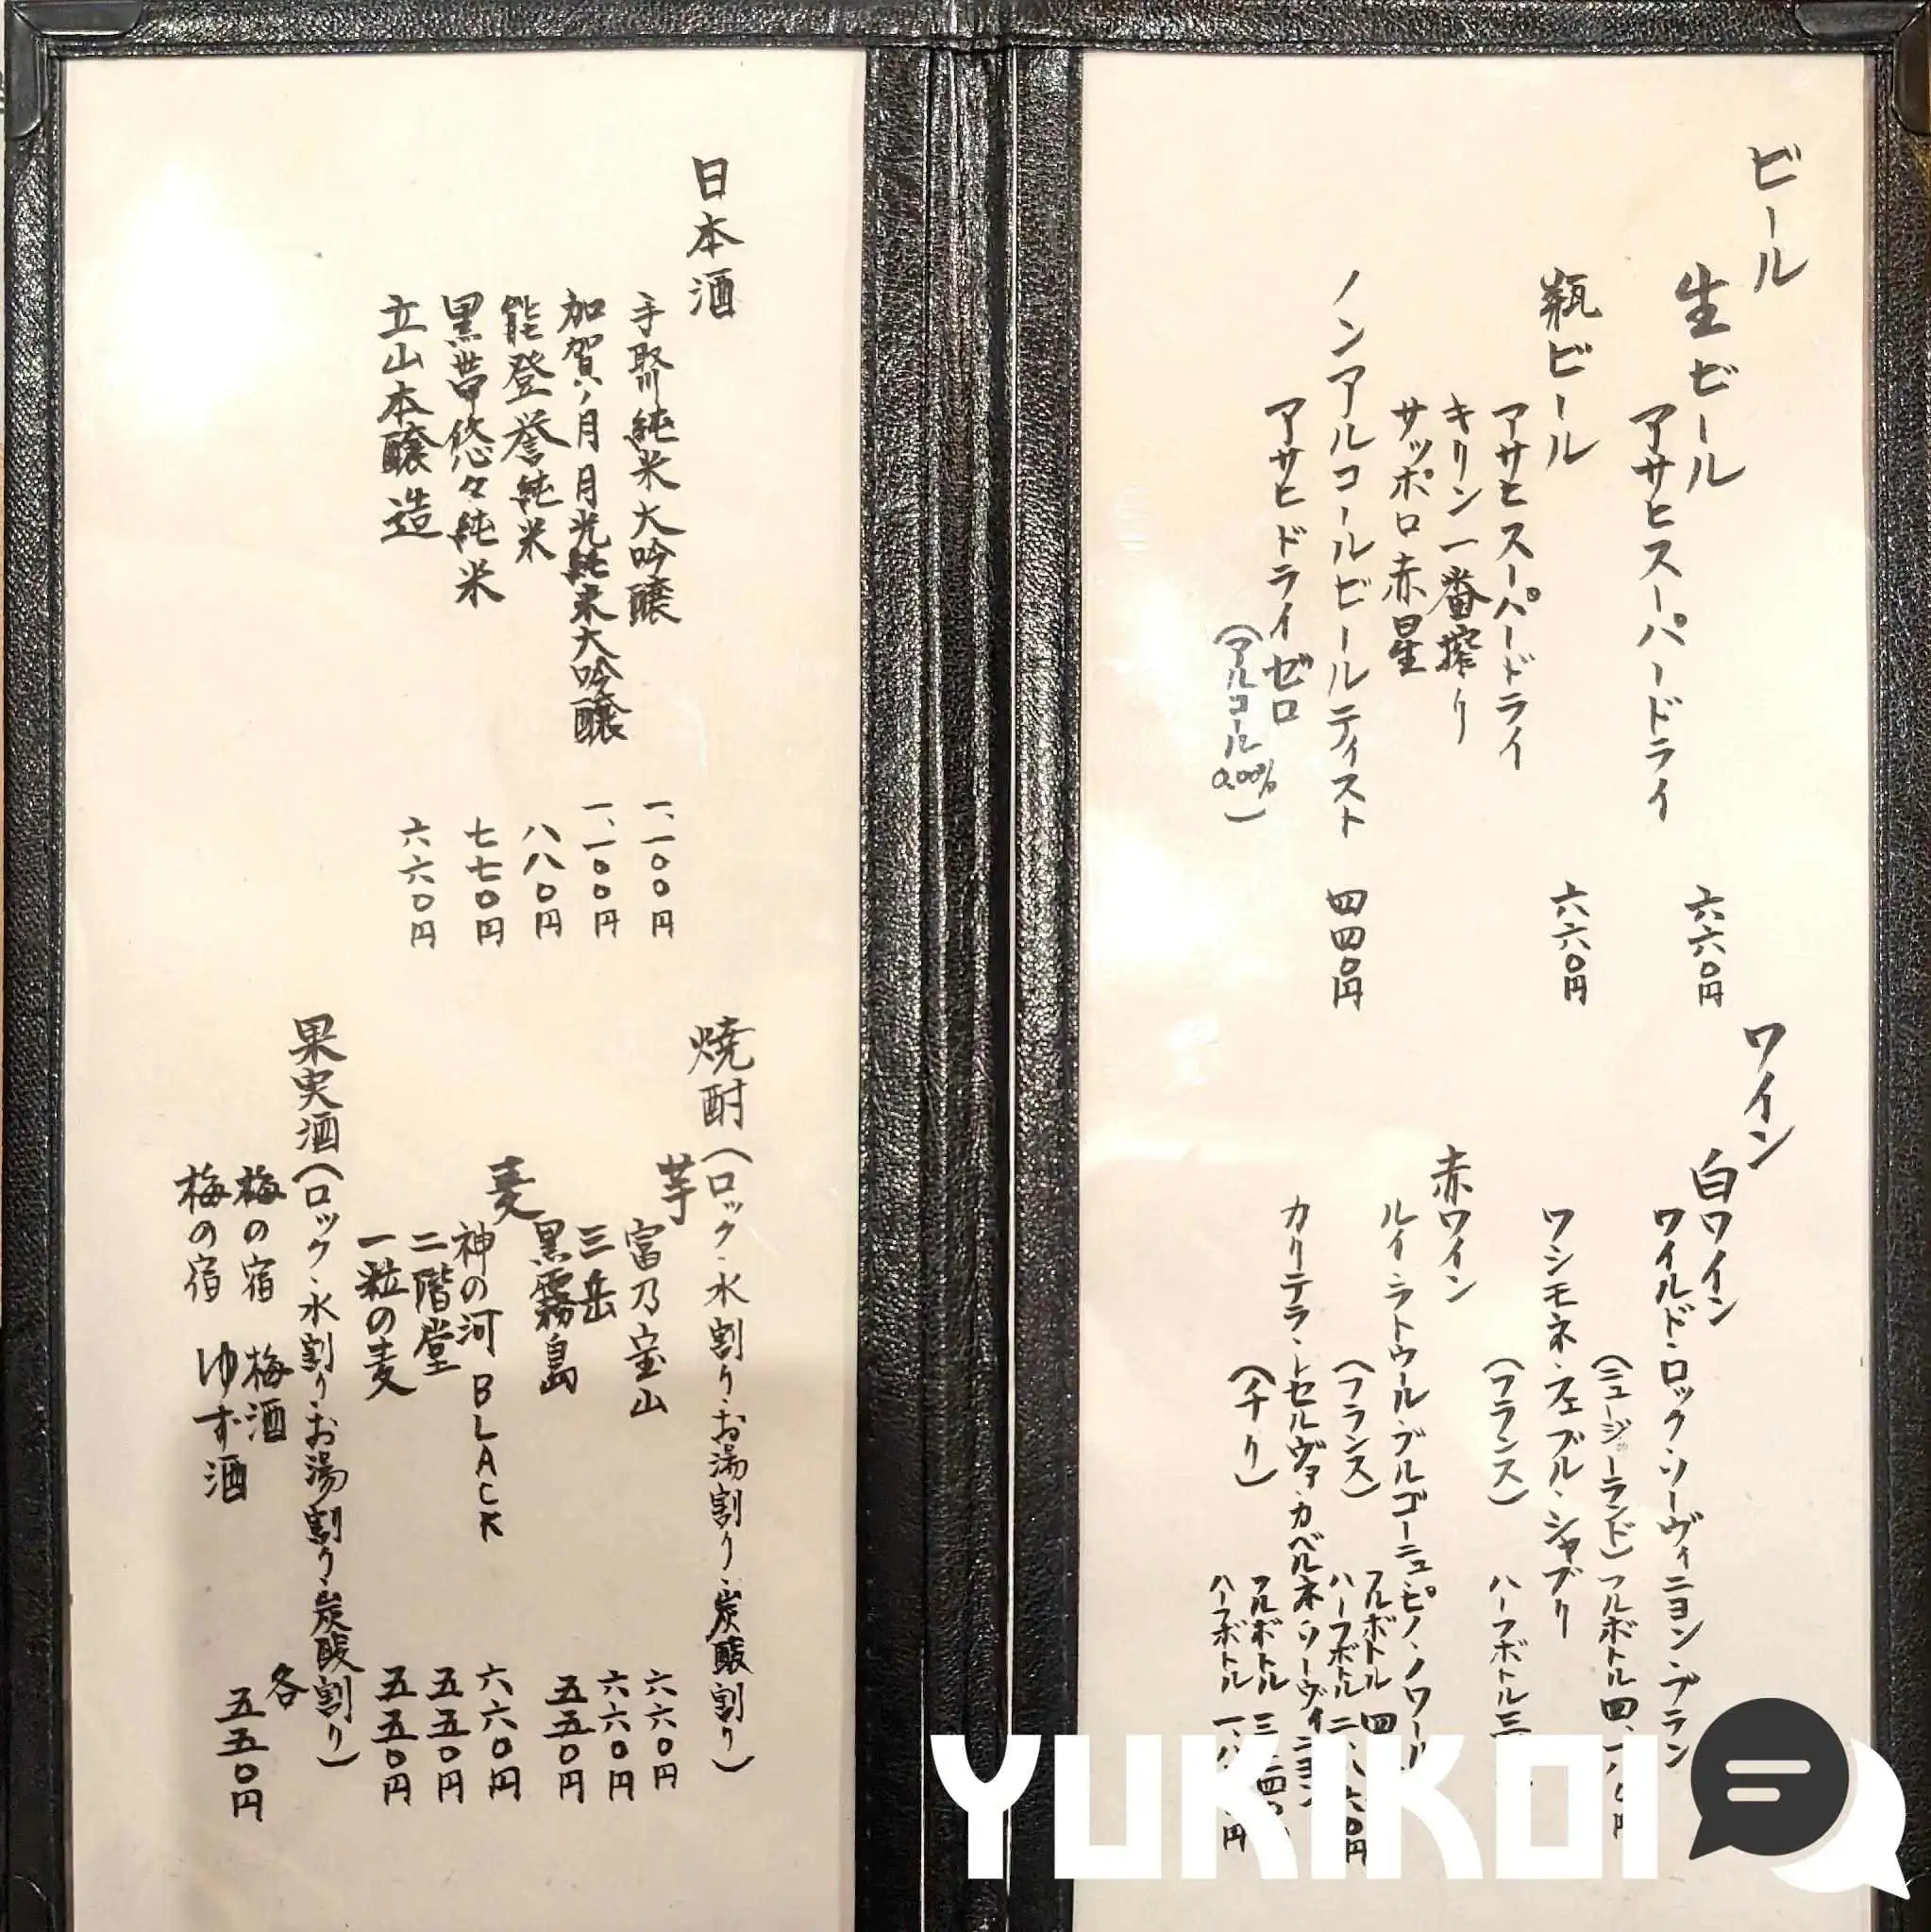 ビール
生ビール
アサヒスーパードライ
六六〇円
瓶ビール
アサヒスーパードライ
キリン一番搾り
サッポロ赤星
六六〇円
ノンアルコールビールテイスト
四四〇円
アサヒドライゼロ
(アルコール0.00%)
ワイン
白ワイン
ワイルド・ロック・ソーヴィニヨン・ブラン
(ニュージーランド)フルボトル四、一八〇円
ワシモネ・フェブル・シャブリ
(フランス)ハーフボトル三
赤ワイン
ルイ・ラトゥール・ブルゴーニュ・ピノ・ノワール
(フランス)
フルボトル四
ハーフボトル二、八六〇円
カリテラ・レセルヴァ・カベルネ・ソーヴィニヨン
(チリ)
フルボトル三
ハーフボトル一、八 円
日本酒
手取川純米大吟醸 一、一〇〇円
加賀ノ月月光純米大吟醸 一、一〇〇円
能登誉純米 八八〇円
黒帯悠々純米 七七〇円
立山本醸造 六六〇円
焼酎(ロック・水割り・お湯割り・炭酸割り)
芋
富乃宝山 六六〇円
三岳 六六〇円
黒霧島 五五〇円
麦
神の河 BLACK 六六〇円
二階堂 五五〇円
一粒の麦 五五〇円
果実酒(ロック・水割り・お湯割り・炭酸割り)
梅の宿 梅酒
梅の宿 ゆず酒
各 五五〇円
YUKIKOI